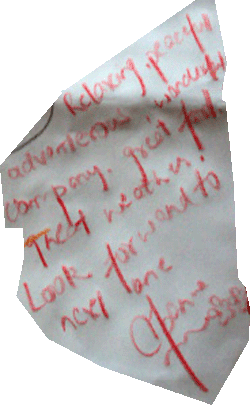 Relaxing, peaceful
adventerous, wonderful
company, great food
Great weather!
Look forward to
next one